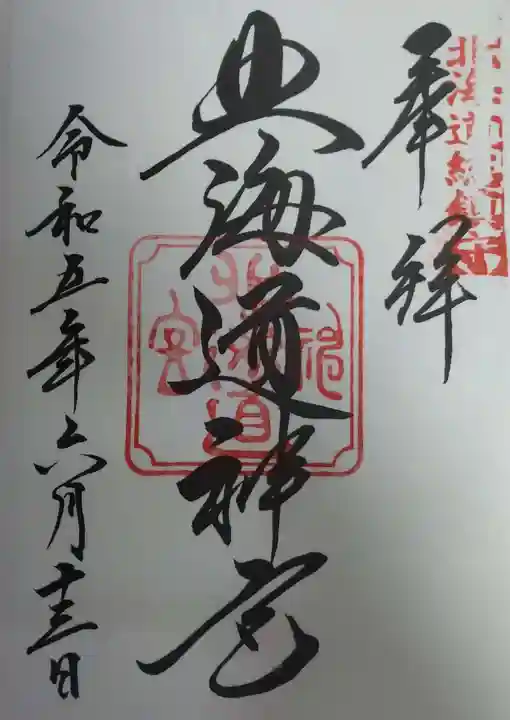 北海道総鎮守
奉拝
北海道神宮
北海道神宮
令和五年六月十三日